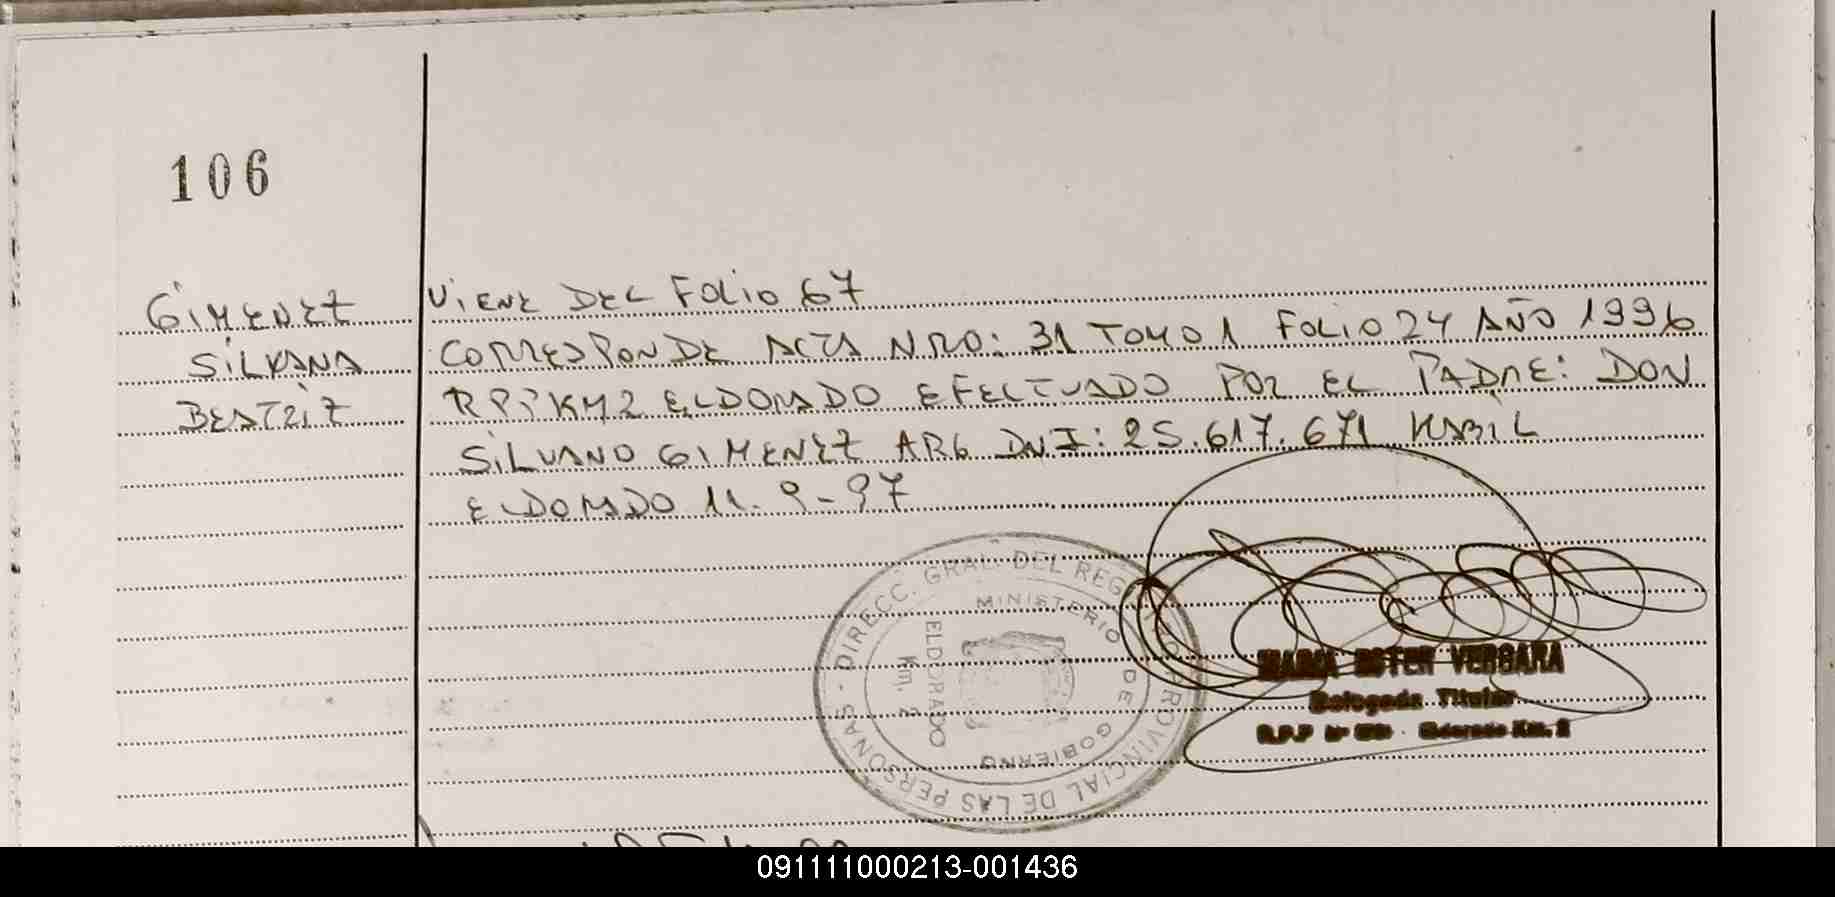 106
GIMENEZ
SILVANA
BEATRIZ
VIENE DEL FOLIO 67
CORRESPONDE ACTA NRO: 31 TOMO 1 FOLIO 24 AÑO 1996
RPP KM 2 ELDORADO EFECTUADO POR EL PADRE: DON
SILVANO GIMENEZ ARG DNI: 25.617.671 HABIL
ELDORADO 11.9-97
DIRECC. GRAL. DEL REGISTRO PROVINCIAL DE LAS PERSONAS -
MINISTERIO DE GOBIERNO
ELDORADO
Km. 2
MARIA ESTER VERGARA
Delegada Titular
R.P.P Nº Eldorado Km. 2
091111000213-001436